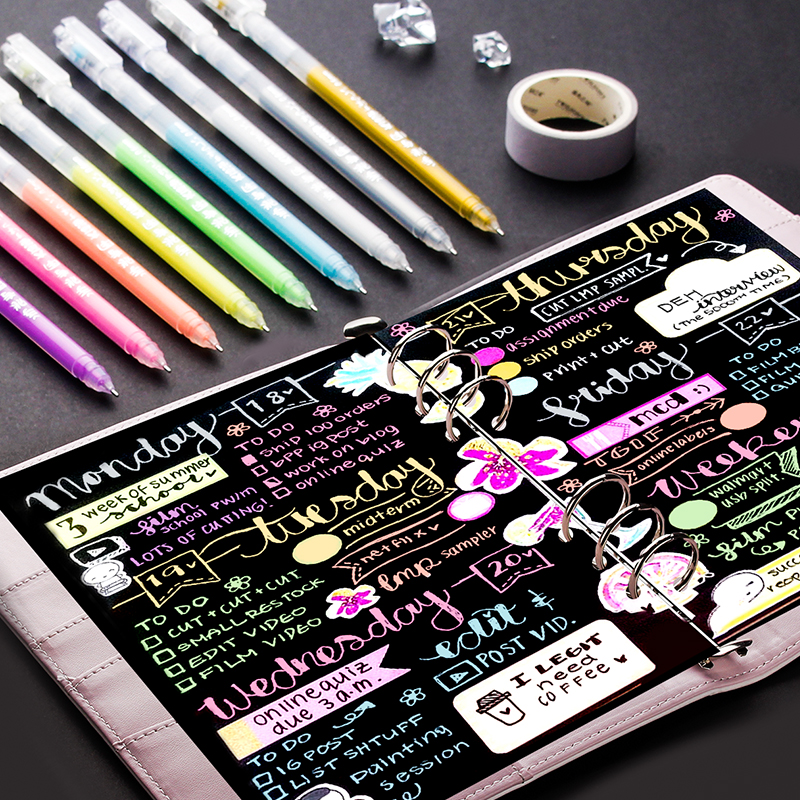 monday
18
TO DO
SHIP 100 ORDERS
BPP IG POST
WORK ON BLOG
ONLINE QUIZ
3 week of summer
school
film
SCHOOL PW/M
LOTS OF CUTING!
tuesday
19
midterm
netflix
lmp sampler
TO DO
CUT + CUT + CUT
SMALL RESTOCK
EDIT VIDEO
FILM VIDEO
wednesday
20
online quiz
due 3 a.m.
edit &
POST VID.
TO DO
IG POST
LIST SHTUFF
painting
session
I LEGIT
need
COFFEE
thursday
21
CUT LMP SAMPL
TO DO
assignment due
ship orders
print + cut
DEM
interview
(THE 5000TH TIME)
friday
22
mcd :)
TGIF
onlinelabels
TO DO
FILM
weeken
walmart
usb split.
film